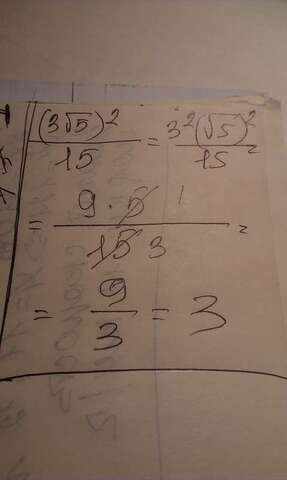 (3√5)²/15 = 3²(√5)²/15 =
= 9 · 5 1/15 3 =
= 9/3 = 3